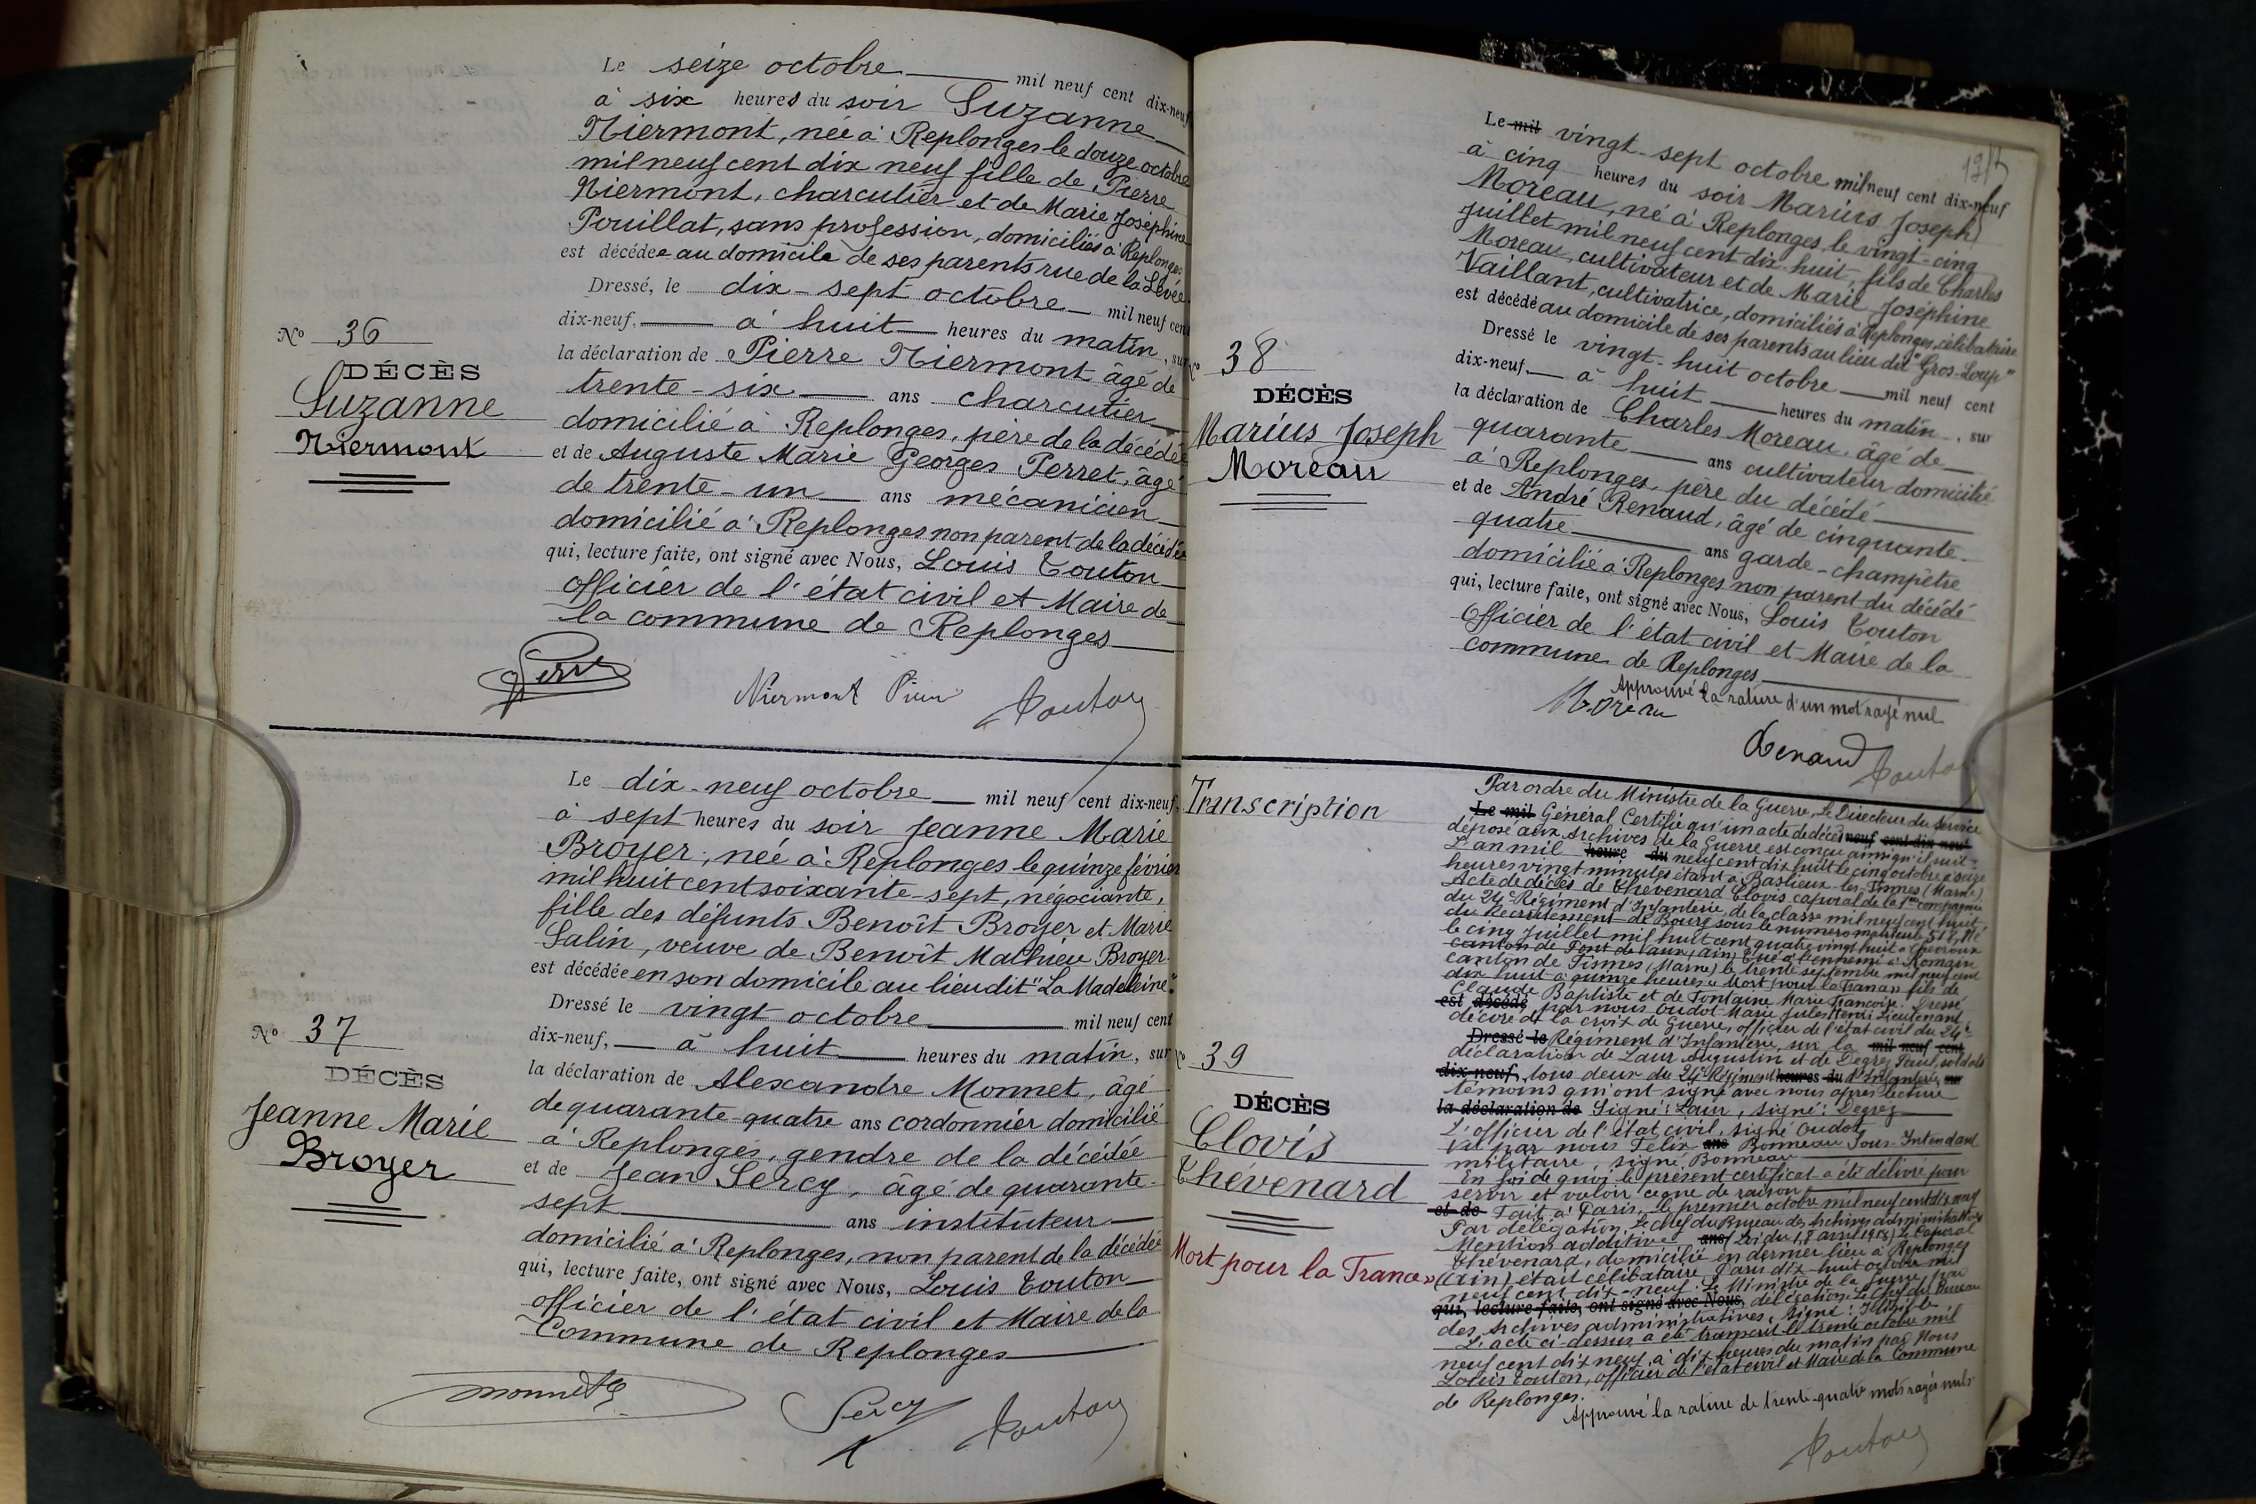 Le seize octobre mil neuf cent dix-neuf
à six heures du soir Suzanne
Niermont, née à Replonges le douze octobre
mil neuf cent dix neuf fille de Pierre
Niermont, charcutier et de Marie Joséphine
Pouillat, sans profession, domiciliés à Replonges
est décédée au domicile de ses parents rue de la Levée
Dressé, le dix-sept octobre mil neuf cent
dix-neuf, à huit heures du matin, sur
la déclaration de Pierre Niermont âgé de
trente-six ans charcutier
domicilié à Replonges, père de la décédée
et de Auguste Marie Georges Perret, âgé
de trente-un ans mécanicien
domicilié à Replonges non parent de la décédée
qui, lecture faite, ont signé avec Nous, Louis Touton
officier de l'état civil et Maire de
la commune de Replonges
Niermont Pierre Touton
No 36
DÉCÈS
Suzanne
Niermont
Le dix-neuf octobre mil neuf cent dix-neuf,
à sept heures du soir Jeanne Marie
Broyer, née à Replonges le quinze février
mil huit cent soixante-sept, négociante,
fille des défunts Benoît Broyer et Marie
Salin, veuve de Benoît Mathieu Broyer
est décédée en son domicile au lieu dit "La Madeleine"
Dressé le vingt octobre mil neuf cent
dix-neuf, à huit heures du matin, sur
la déclaration de Alexandre Monnet, âgé
de quarante-quatre ans cordonnier domicilié
à Replonges, gendre de la décédée
et de Jean Sercy, âgé de quarante-
sept ans instituteur
domicilié à Replonges, non parent de la décédée
qui, lecture faite, ont signé avec Nous, Louis Touton
officier de l'état civil et Maire de la
Commune de Replonges
Monnet Sercy Touton
No 37
DÉCÈS
Jeanne Marie
Broyer
Le mil vingt-sept octobre mil neuf cent dix-neuf
à cinq heures du soir Marius Joseph
Moreau, né à Replonges, le vingt-cinq
Juillet mil neuf cent dix-huit, fils de Charles
Moreau, cultivateur et de Marie Joséphine
Vaillant, cultivatrice, domiciliés à Replonges, célibataire
est décédé au domicile de ses parents au lieu dit "Gros-Loup"
Dressé le vingt-huit octobre mil neuf cent
dix-neuf, à huit heures du matin, sur
la déclaration de Charles Moreau, âgé de
quarante ans cultivateur domicilié
à Replonges, père du décédé
et de André Renaud, âgé de cinquante-
quatre ans garde-champêtre
domicilié à Replonges non parent du décédé
qui, lecture faite, ont signé avec Nous, Louis Touton
Officier de l'état civil et Maire de la
commune de Replonges
Approuvé la rature d'un mot rayé nul
Moreau
Renaud Touton
No 38
DÉCÈS
Marius Joseph
Moreau
Transcription
No 39
DÉCÈS
Clovis
Thévenard
Mort pour la France»
Par ordre du Ministre de la Guerre, Le Directeur du Service
Le mil Général Certifie qu'un acte de décès neuf cent dix-neuf
déposé aux Archives de la Guerre est conçu ainsi qu'il suit:
L'an mil heure du neuf cent dix huit le cinq octobre à seize
heures vingt minutes étant à Baslieux-les-Fismes (Marne)
Acte de décès de Thévenard Clovis caporal de la 1re compagnie
du 24e Régiment d'Infanterie, de la classe mil neuf cent huit,
du Recrutement de Bourg sous le numéro matricule 518, Né
le cinq Juillet mil huit cent quatre vingt huit à Chevroux
canton de Pont de Vaux, (Ain) Tué à l'ennemi à Romain
canton de Fismes (Marne) le trente septembre mil neuf cent
dix huit à quinze heures « Mort pour la France» fils de
Claude Baptiste et de Fontaine Marie Françoise. Dressé
est décédé par nous Oudot Marie Jules Henri Lieutenant
décoré de la croix de Guerre, officier de l'état civil du 24e
Dressé le Régiment d'Infanterie, sur la mil neuf cent
déclaration de Laur Augustin et de Degrez Paul, soldats
dix-neuf, tous deux du 24e Régiment heures du d'Infanterie, sur
témoins qui ont signé avec nous après lecture
la déclaration de Signé: Laur, signé: Degrez
L'officier de l'état civil, signé Oudot
Vu par nous Félix ans Bonneau Sous-Intendant
militaire, signé, Bonneau
En foi de quoi le présent certificat a été délivré pour
servir et valoir ce que de raison
et de Fait à Paris, le premier octobre mil neuf cent dix neuf
Par délégation, Le chef du Bureau des Archives administratives
Mention additive ans (Loi du 18 avril 1918) Le Caporal
Thévenard, domicilié en dernier lieu à Replonges
(Ain) était célibataire, Paris dix-huit octobre mil
neuf cent dix-neuf. Le Ministre de la Guerre, par
qui, lecture faite, ont signé avec Nous, délégation Le Chef du Bureau
des Archives administratives. Signé: Illisible
L'acte ci-dessus a été transcrit le trente octobre mil
neuf cent dix neuf, à dix heures du matin par Nous
Louis Touton, officier de l'état civil et Maire de la Commune
de Replonges.
Approuvé la rature de trente-quatre mots rayés nuls
Touton